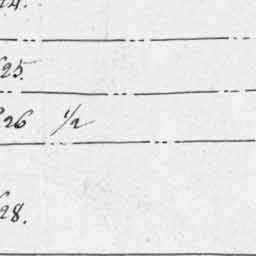 24.
25.
26 1/2
28.